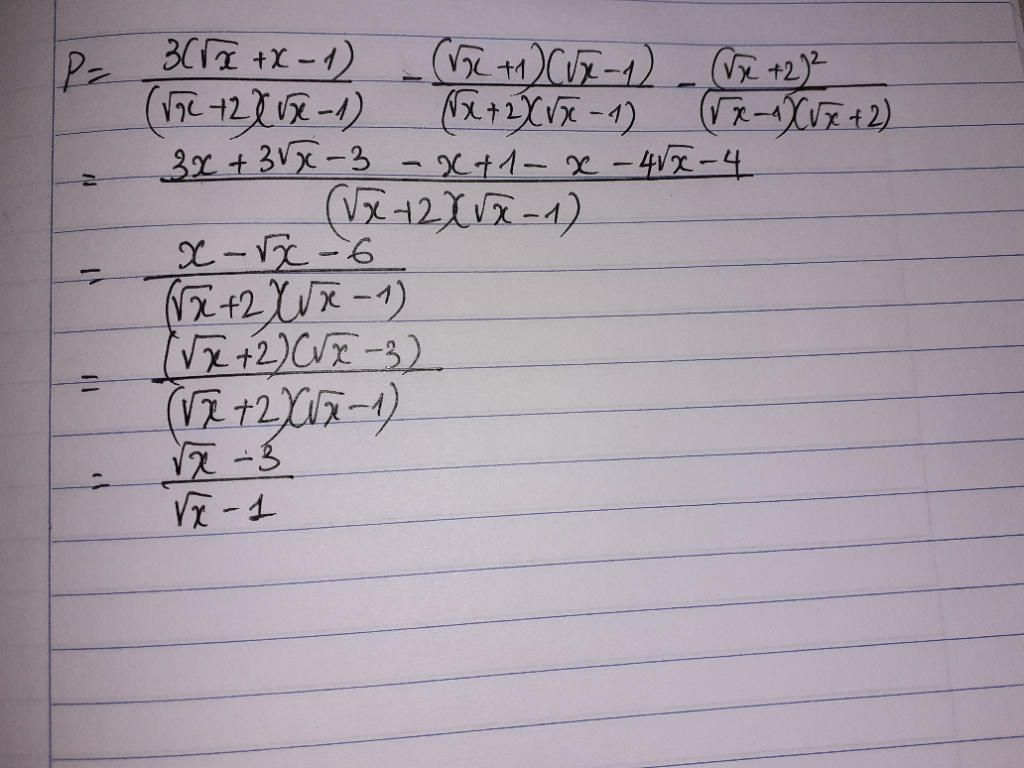 P = 3(√x + x − 1)/(√x + 2)(√x − 1) − (√x + 1)(√x − 1)/(√x + 2)(√x − 1) − (√x + 2)²/(√x − 1)(√x + 2)
= 3x + 3√x − 3 − x + 1 − x − 4√x − 4/(√x + 2)(√x − 1)
= x − √x − 6/(√x + 2)(√x − 1)
= (√x + 2)(√x − 3)/(√x + 2)(√x − 1)
= √x − 3/√x − 1